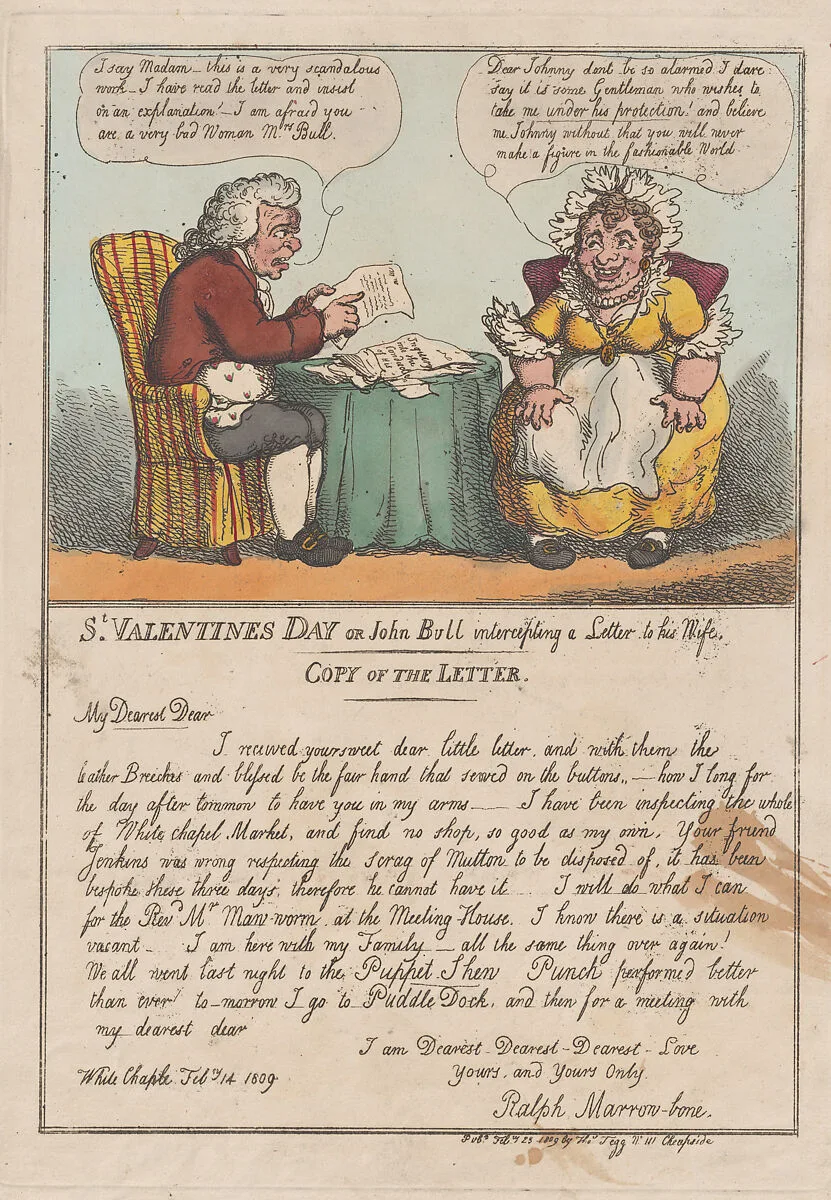 I say Madam - this is a very scandalous
work - I have read the letter and insist
on an explanation! - I am afraid you
are a very bad Woman Mrs Bull.
Dear Johnny dont be so alarmed I dare
say it is some Gentleman who wishes to
take me under his protection! and believe
me Johnny without that you will never
make a figure in the fashionable World
St. VALENTINES DAY OR John Bull intercepting a Letter to his Wife.
COPY OF THE LETTER.
My Dearest Dear
I received your sweet dear little letter, and with them the
leather Breeches and blessed be the fair hand that sewed on the buttons,, — how I long for
the day after tommorro to have you in my arms — — I have been inspecting the whole
of White chapel Market, and find no shop, so good as my own, Your friend
Jenkins was wrong respecting the scrag of Mutton to be disposed of, it has been
bespoke these three days, therefore he cannot have it _ I will do what I can
for the Revd Mr Maw-worm, at the Meeting House. I know there is a situation
vacant _ I am here with my Family _ all the same thing over again!
We all went last night to the Puppet Shew Punch performed better
than ever! to-morrow I go to Puddle Dock, and then for a meeting with
my dearest dear
I am Dearest - Dearest - Dearest - Love
Yours, and Yours Only.
White Chaple Feby 14 1809
Ralph Marrow-bone.
Pubd Feby 25 1809 by Thos Tegg No 111 Cheapside